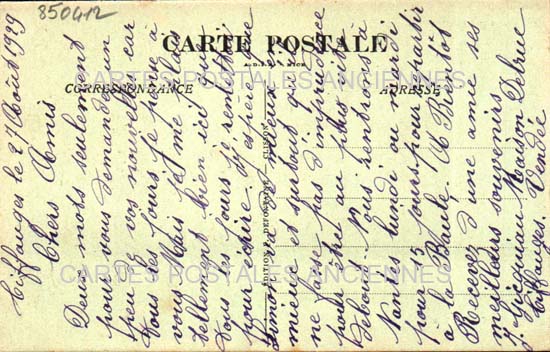 850412
CARTE POSTALE
A.D.I.A. NICE
CORRESPONDANCE
ADRESSE
CARTES POSTALES ANCIENNES
CARTES POSTALES ANCIENNES
CLISSON
Tiffauges le 27 Août 1929
Chers Amis
Deux mots seulement
pour vous demander un
peu de vos nouvelles car
tous les jours je pense à
vous. Mais je me plais
tellement bien ici que
tous les jours je remettais
pour écrire. J'espère que
Simone va de mieux en
mieux et surtout qu'elle
ne fasse pas d'imprudence
pour être au plus vite
debout. Nous rentrons à
Nantes lundi ou mardi
pour 15 jours pour repartir
à la Baule. A Bientôt
Recevez d'une amie ses
meilleurs souvenirs
J. Jacqueau Maison Delrue
Tiffauges. Vendée